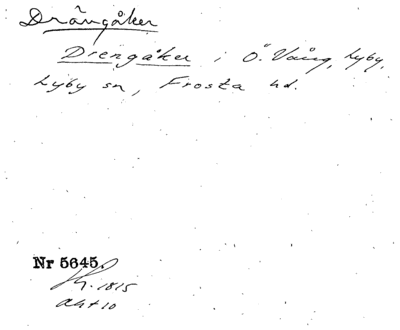 Drängåker
Drengåker i Ö. Vång, Lyby,
Lyby sn, Frosta hd.
Nr 5645.
1815
akt 10